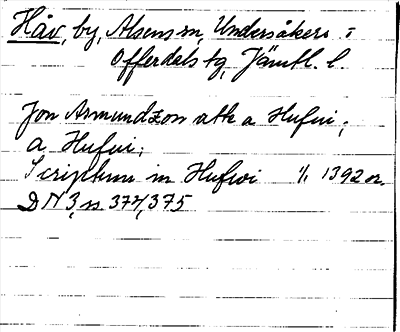 Håv, by, Alsens sn, Undersåkers o
Offerdals tg, Jämtl. l.
Jon Asmundzon atte a Hufui;
a Hufui;
Scriptum in Hufwi 1/1 1392 or.
DN 3, s 374, 375